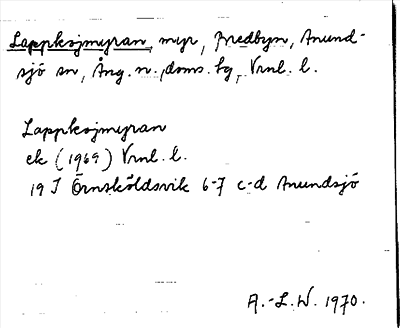 Lappksjmyran, myr, Bredbyn, Anund-
sjö sn, Ång. n. doms. bg, Vrnl. l.
Lappksjmyran
ek (1969) Vrnl. l.
19 J Örnsköldsvik 6-7 c-d Anundsjö
A.-L.W. 1970.